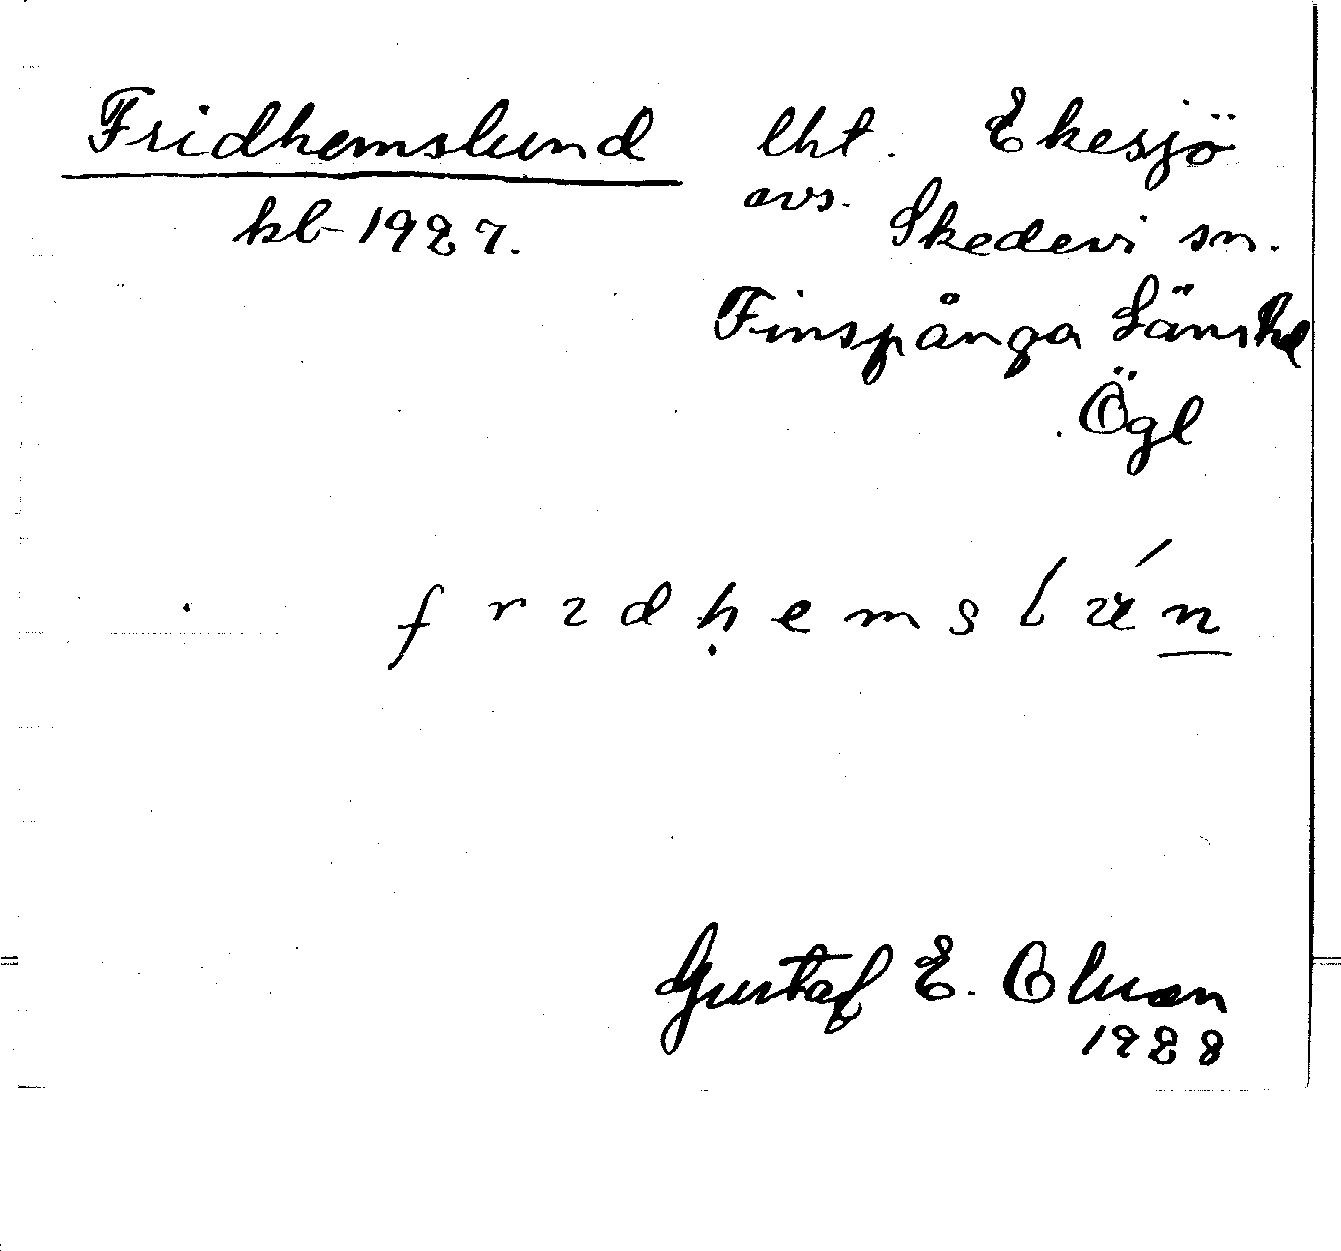 Fridhemslund lht. Ekesjö
kb 1927. avs. Skedevi sn.
Finspånga Länshd
Ögl
fridhemslún
Gustaf E. Olsson
1928